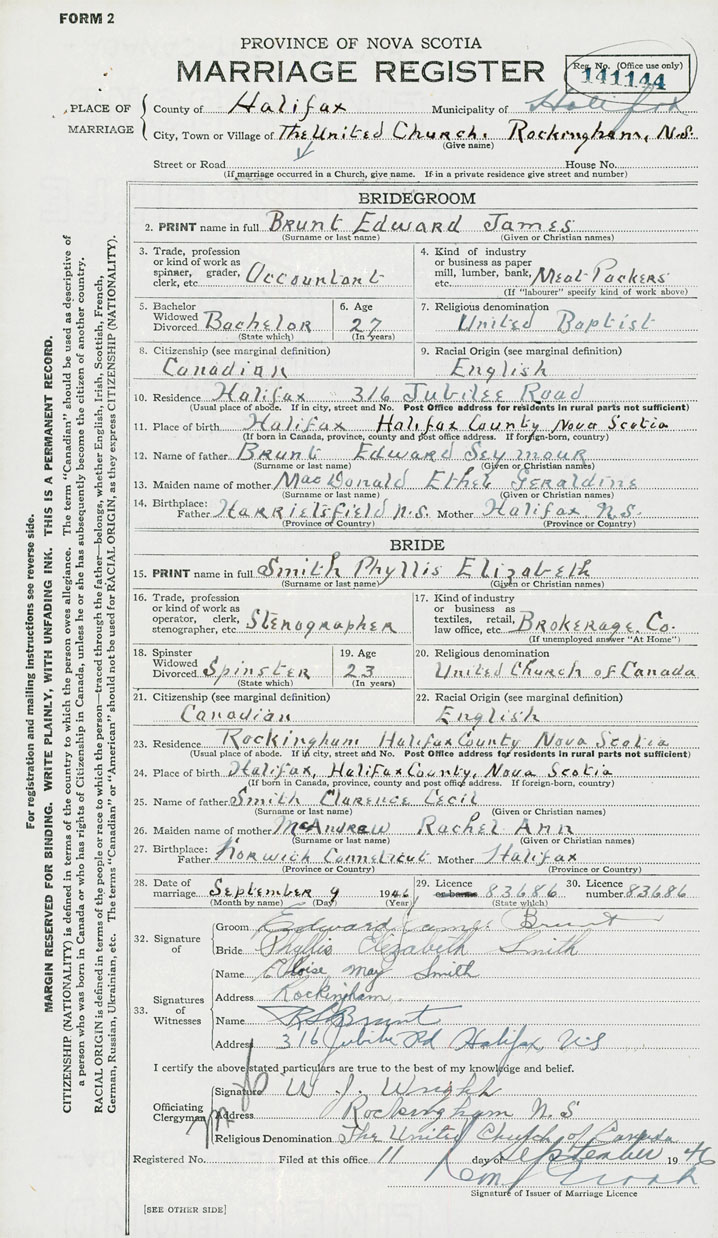 FORM 2
PROVINCE OF NOVA SCOTIA
MARRIAGE REGISTER
Reg. No. (Office use only)
141144
PLACE OF MARRIAGE
County of Halifax Municipality of Halifax
City, Town or Village of The United Church. Rockingham, N.S.
(Give name)
Street or Road House No.
(If marriage occurred in a Church, give name. If in a private residence give street and number)
BRIDEGROOM
2. PRINT name in full Brunt Edward James
(Surname or last name) (Given or Christian names)
3. Trade, profession or kind of work as spinner, grader, clerk, etc. Accountant
4. Kind of industry or business as paper mill, lumber, bank, etc. Meat Packers
(If "labourer" specify kind of work above)
5. Bachelor Widowed Divorced Bachelor
(State which)
6. Age 27
(In years)
7. Religious denomination
United Baptist
8. Citizenship (see marginal definition)
Canadian
9. Racial Origin (see marginal definition)
English
10. Residence Halifax 316 Jubilee Road
(Usual place of abode. If in city, street and No. Post Office address for residents in rural parts not sufficient)
11. Place of birth Halifax Halifax County Nova Scotia
(If born in Canada, province, county and post office address. If foreign-born, country)
12. Name of father Brunt Edward Seymour
(Surname or last name) (Given or Christian names)
13. Maiden name of mother MacDonald Ethel Geraldine
(Surname or last name) (Given or Christian names)
14. Birthplace: Father Harrietsfield N.S. Mother Halifax N.S.
(Province or Country) (Province or Country)
BRIDE
15. PRINT name in full Smith Phyllis Elizabeth
(Surname or last name) (Given or Christian names)
16. Trade, profession or kind of work as operator, clerk, stenographer, etc. Stenographer
17. Kind of industry or business as textiles, retail, law office, etc. Brokerage. Co.
(If unemployed answer "At Home")
18. Spinster Widowed Divorced Spinster
(State which)
19. Age 23
(In years)
20. Religious denomination
United Church of Canada
21. Citizenship (see marginal definition)
Canadian
22. Racial Origin (see marginal definition)
English
23. Residence Rockingham Halifax County Nova Scotia
(Usual place of abode. If in city, street and No. Post Office address for residents in rural parts not sufficient)
24. Place of birth Halifax, Halifax County, Nova Scotia
(If born in Canada, province, county and post office address. If foreign-born, country)
25. Name of father Smith Clarence Cecil
(Surname or last name) (Given or Christian names)
26. Maiden name of mother McAndrew Rachel Ann
(Surname or last name) (Given or Christian names)
27. Birthplace: Father Norwich Conneticut Mother Halifax
(Province or Country) (Province or Country)
28. Date of marriage September 9 1946
(Month by name) (Day) (Year)
29. Licence or banns 83686
(State which)
30. Licence number 83686
32. Signature of
Groom Edward James Brunt
Bride Phyllis Elizabeth Smith
33. Signatures of Witnesses
Name Eloise May Smith
Address Rockingham
Name Brunt
Address 316 Jubilee Rd Halifax N.S
I certify the above stated particulars are true to the best of my knowledge and belief.
Officiating Clergyman
Signature W. J. Wright
Address Rockingham N.S
Religious Denomination The United Church of Canada
Registered No. Filed at this office 11 day of September 1946
Signature of Issuer of Marriage Licence
[SEE OTHER SIDE]
For registration and mailing instructions see reverse side.
MARGIN RESERVED FOR BINDING. WRITE PLAINLY, WITH UNFADING INK. THIS IS A PERMANENT RECORD.
CITIZENSHIP (NATIONALITY) is defined in terms of the country to which the person owes allegiance. The term "Canadian" should be used as descriptive of
a person who was born in Canada or who has rights of Citizenship in Canada, unless he or she has subsequently become the citizen of another country.
RACIAL ORIGIN is defined in terms of the people or race to which the person—traced through the father—belongs, whether English, Irish, Scottish, French,
German, Russian, Ukrainian, etc. The terms "Canadian" or "American" should not be used for RACIAL ORIGIN, as they express CITIZENSHIP (NATIONALITY).